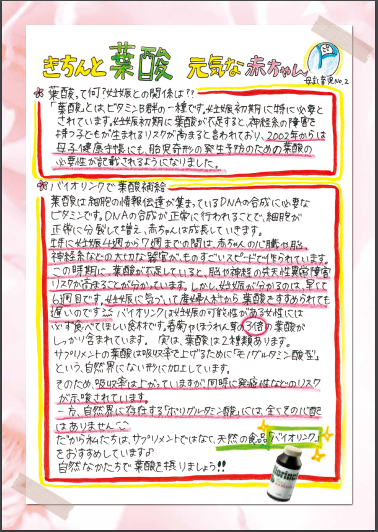 きちんと葉酸 元気な赤ちゃん
母乳育児No.2
葉酸って何?妊娠との関係は!?
「葉酸」とは、ビタミンB群の一種です。妊娠初期に特に必要と
されています。妊娠初期に葉酸が不足すると、神経系の障害を
持つ子どもが生まれるリスクが高まると言われており、2002年からは
母子健康手帳にも、胎児奇形の発生予防のための葉酸の
必要性が記載されるようになりました。
バイオリンクで葉酸補給
葉酸は細胞の情報伝達が集まっているDNAの合成に必要な
ビタミンです。DNAの合成が正常に行われることで、細胞が
正常に分裂して増え、赤ちゃんは成長していきます。
特に妊娠4週から7週までの間は、赤ちゃんの心臓や脳、
神経系などの大切な器官が、ものすごいスピードで作られています。
この時期に、葉酸が不足していると、脳や神経の先天性異常障害
リスクが高まることが分かっています。しかし妊娠が分かるのは、早くて
6週目です。妊娠に気づいて産婦人科から葉酸をすすめられても
遅いのです バイオリンクは妊娠の可能性がある女性には
必ず食べてほしい食材です。春菊やほうれん草の3倍の葉酸が
しっかり含まれています。 実は、葉酸は2種類あります。
サプリメントの葉酸は吸収率を上げるために「モノグルタミン酸型」
という、自然界にない形に加工しています。
そのため、吸収率は上がっていますが、同時に発症性などのリスク
が示唆されています。
一方、自然界に存在する「ポリグルタミン酸」には、全くその心配
はありません
だから私たちは、サプリメントではなく、天然の食品「バイオリンク」
をおすすめしています♪
自然なかたちで葉酸を摂りましょう!!